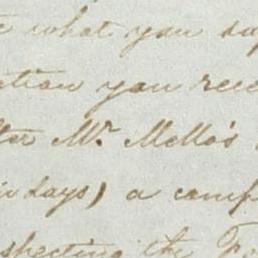 what you say
ation you rece
ter Mr. Mello's
days) a comp
specting the